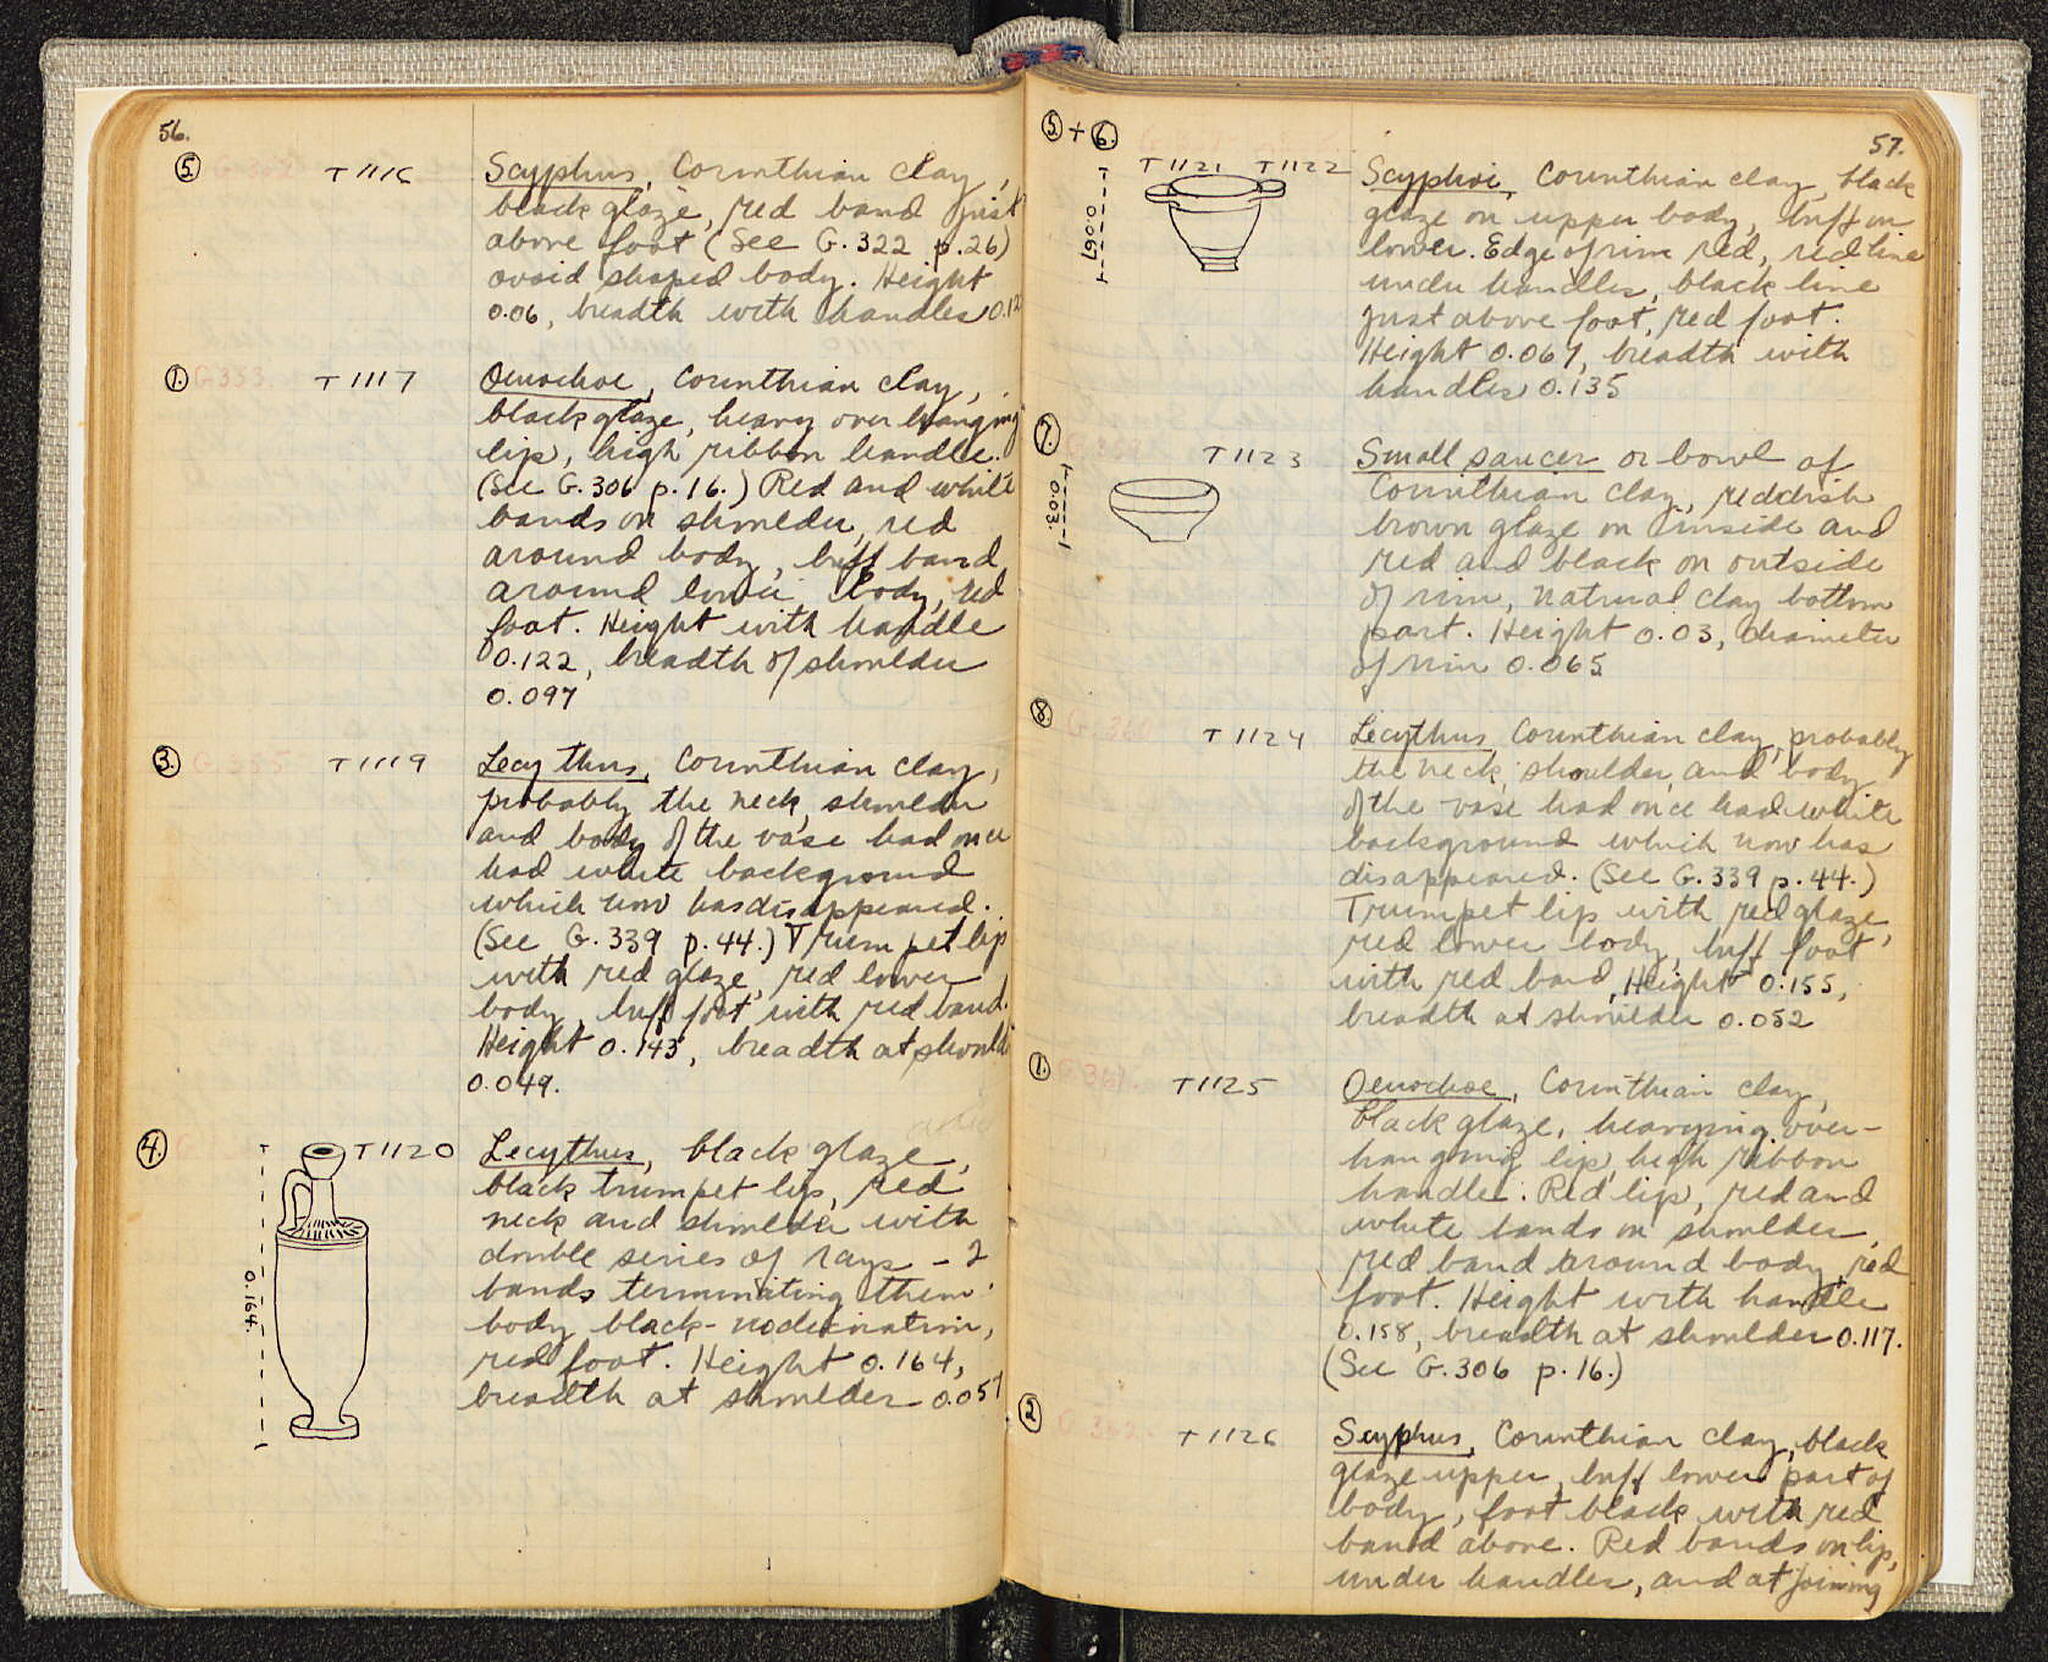 56.
5. T 1116 Scyphus, Corinthian clay,
black glaze, red band just
above foot (See G.322 p.26)
ovoid shaped body. Height
0.06, breadth with handles
1. G353. T 1117 Oenochoe, Corinthian clay,
black glaze, heavy over hanging
lip, high ribbon handle.
(See G.306 p.16.) Red and white
bands on shoulder, red
around body, buff band
around lower body, red
foot. Height with handle
0.122, breadth of shoulder
0.097
3. G.355 T 1119 Lecythus, Corinthian clay,
probably the neck, shoulder
and body of the vase had once
had white background
which now has disappeared.
(See G.339 p.44.) Trumpet lip
with red glaze, red lower
body, buff foot with red band.
Height 0.143, breadth at
0.049.
4. T 1120 Lecythus, black glaze,
black trumpet lip, red
neck and shoulder with
double series of rays - 2
bands terminating them.
body black - no decoration,
red foot. Height 0.164,
breadth at shoulder 0.057
0.164.
57.
5. + 6.
T 1121 T 1122 Scyphoi, Corinthian clay, black
glaze on upper body, buff on
lower. Edge of rim red, red line
under handles, black line
just above foot, red foot.
Height 0.067, breadth with
handles 0.135
0.067
7. T 1123 Small saucer or bowl of
Corinthian clay, reddish
brown glaze on inside and
red and black on outside
of rim, natural clay bottom
part. Height 0.03, diameter
of rim 0.065
0.03.
8. G.360 T 1124 Lecythus, Corinthian clay, probably
the neck, shoulder, and body
of the vase had once had white
background which now has
disappeared. (See G.339 p.44.)
Trumpet lip with red glaze,
red lower body, buff foot
with red band, Height 0.155,
breadth at shoulder 0.052
1. G 361. T 1125 Oenochoe, Corinthian clay,
black glaze, heavying over-
hanging lip, high ribbon
handle. Red lip, red and
white bands on shoulder,
red band around body, red
foot. Height with handle
0.158, breadth at shoulder 0.117.
(See G.306 p.16.)
2 G 362. T 1126 Scyphus, Corinthian clay, black
glaze upper, buff lower part of
body, foot black with red
band above. Red bands on lip,
under handles, and at joining